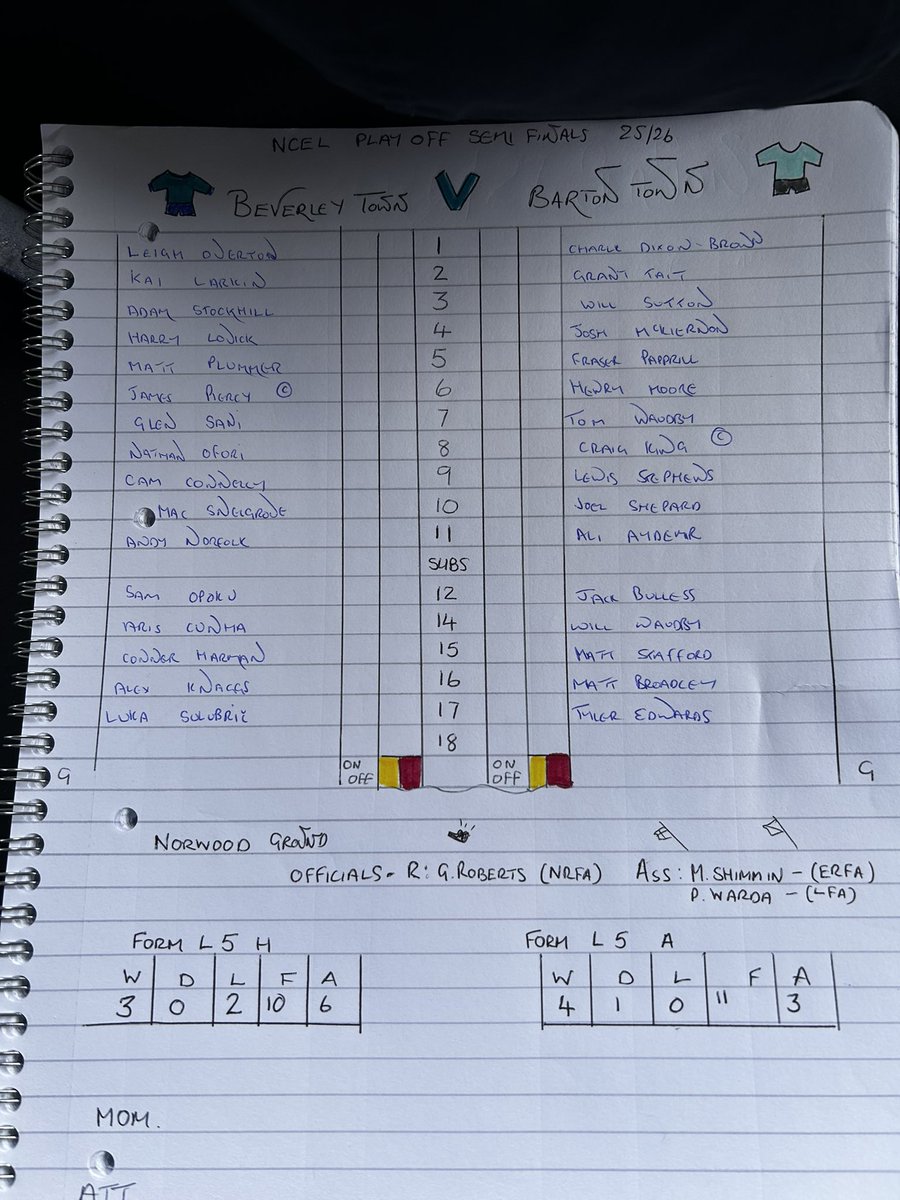 NCEL PLAY OFF SEMI FINALS 25/26
BEVERLEY TOWN V BARTON TOWN
LEIGH OVERTON 1 CHARLE DIXON-BROWN
KAI LARKIN 2 GRANT TAIT
ADAM STOCKHILL 3 WILL SUTTON
HARRY LOVICK 4 JOSH MCKIERNON
MATT PLUMMER 5 FRASER PAPPRILL
JAMES PIERCY © 6 HENRY MOORE
GLEN SANI 7 TOM WAUDBY
NATHAN OFORI 8 CRAIG KING ©
CAM CONNELLY 9 LEWIS STEPHENS
MAC SNELGROVE 10 JOEL SHEPARD
ANDY NORFOLK 11 ALI AYDEMIR
SUBS
SAM OPOKU 12 JACK BULLESS
ARIS CUNHA 14 WILL WAUDBY
CONNER HARMAN 15 MATT STAFFORD
ALEX KNAGGS 16 MATT BROADLEY
LUKA SOLUBRIČ 17 TYLER EDWARDS
18
G ON OFF ON OFF G
NORWOOD GROUND
OFFICIALS - R: G.ROBERTS (NRFA) ASS: M.SHIMMIN - (ERFA)
P.WARDA - (LFA)
FORM L5 H FORM L5 A
W D L F A W D L F A
3 0 2 10 6 4 1 0 11 3
MOM.
ATT